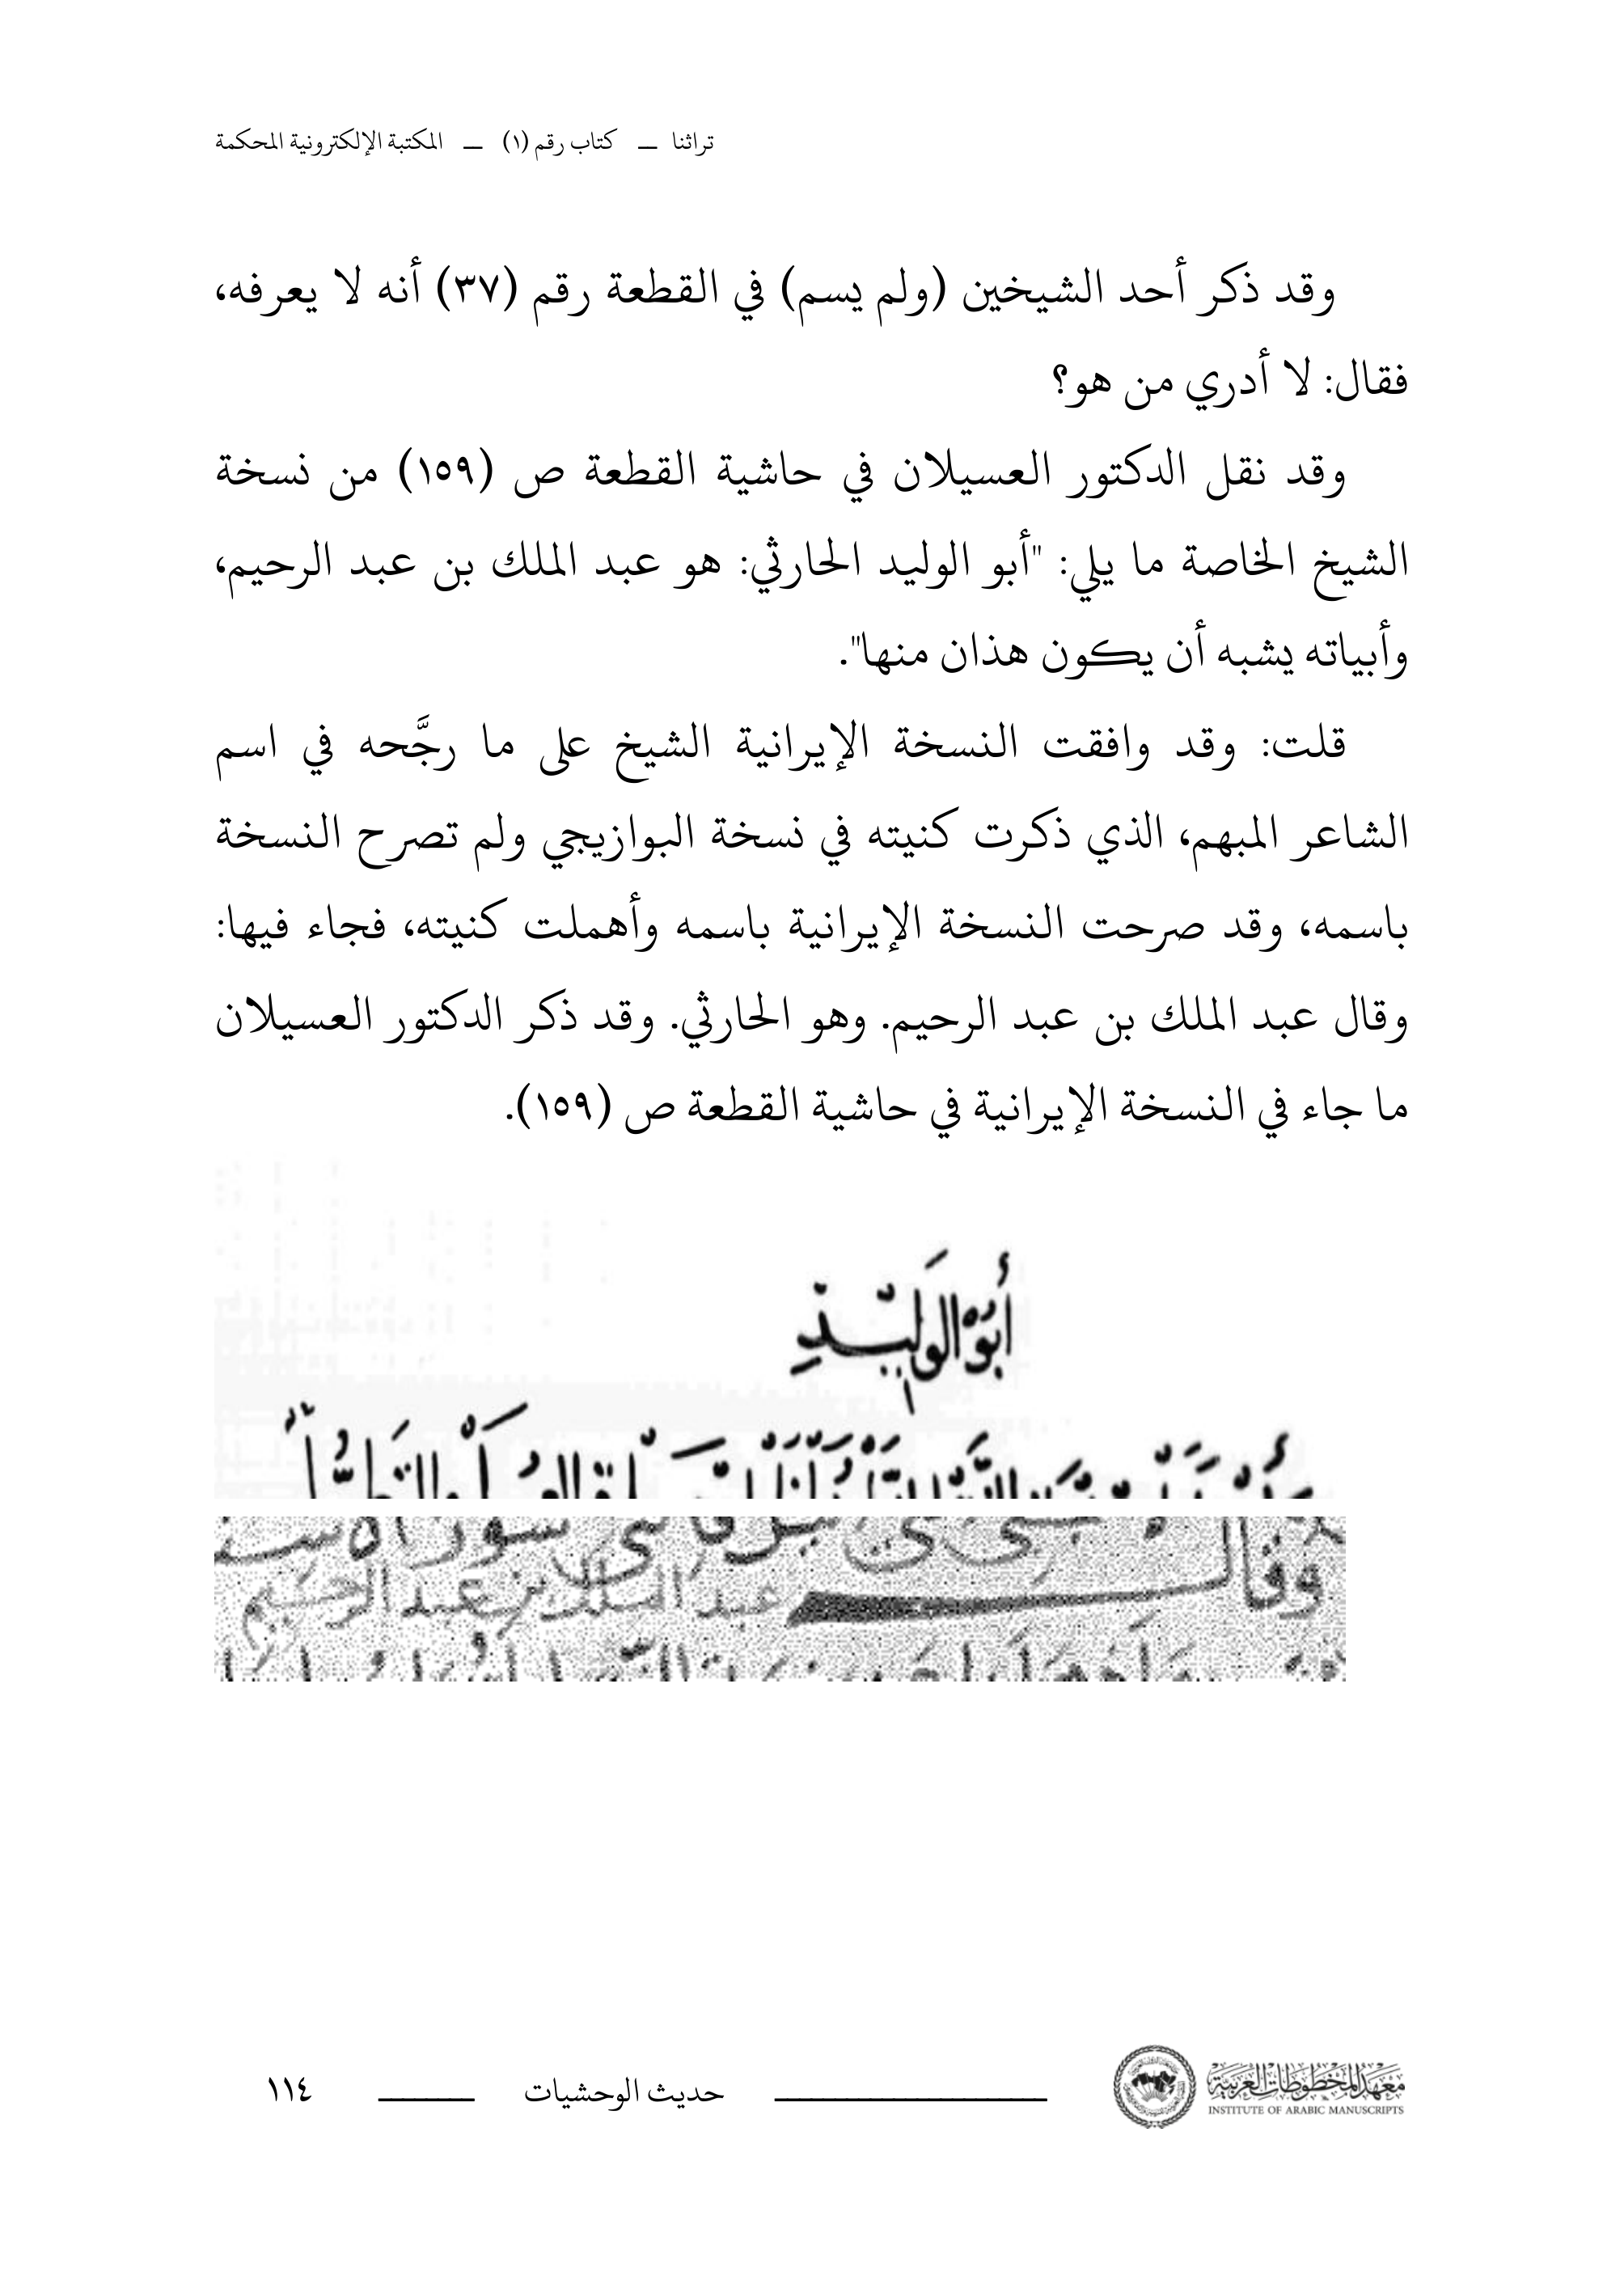 تراثنا — كتاب رقم (١) — المكتبة الإلكترونية المحكمة
وقد ذكر أحد الشيخين (ولم يسم) في القطعة رقم (٣٧) أنه لا يعرفه،
فقال: لا أدري من هو؟
وقد نقل الدكتور العسيلان في حاشية القطعة ص (١٥٩) من نسخة
الشيخ الخاصة ما يلي: "أبو الوليد الحارثي: هو عبد الملك بن عبد الرحيم،
وأبياته يشبه أن يكون هذان منها".
قلت: وقد وافقت النسخة الإيرانية الشيخ على ما رجَّحه في اسم
الشاعر المبهم، الذي ذكرت كنيته في نسخة البوازيجي ولم تصرح النسخة
باسمه، وقد صرحت النسخة الإيرانية باسمه وأهملت كنيته، فجاء فيها:
وقال عبد الملك بن عبد الرحيم. وهو الحارثي. وقد ذكر الدكتور العسيلان
ما جاء في النسخة الإيرانية في حاشية القطعة ص (١٥٩).
أَبُوْ الوَلِيْدِ
وقال عبد الملك بن عبد الرحيم
معهد المخطوطات العربية
INSTITUTE OF ARABIC MANUSCRIPTS
حديث الوحشيات
١١٤